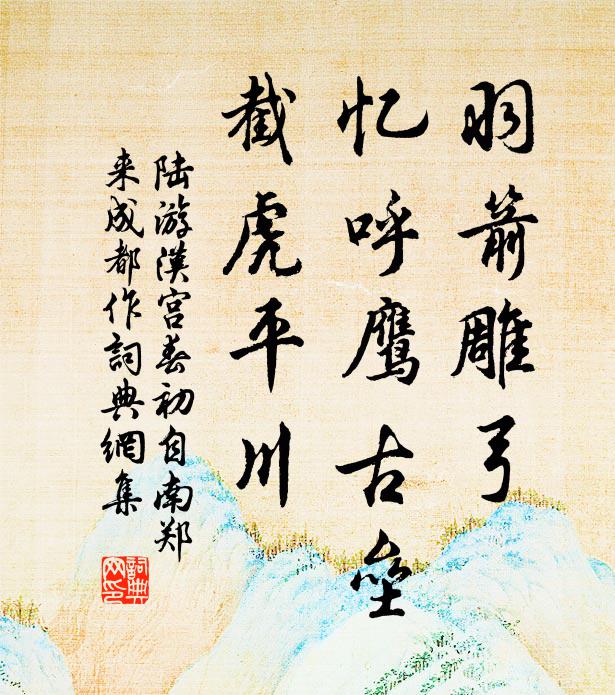 羽箭雕弓
忆呼鹰古垒
截虎平川
陆游漢宫春初自南郑
来成都作詞典網集
詞典网印